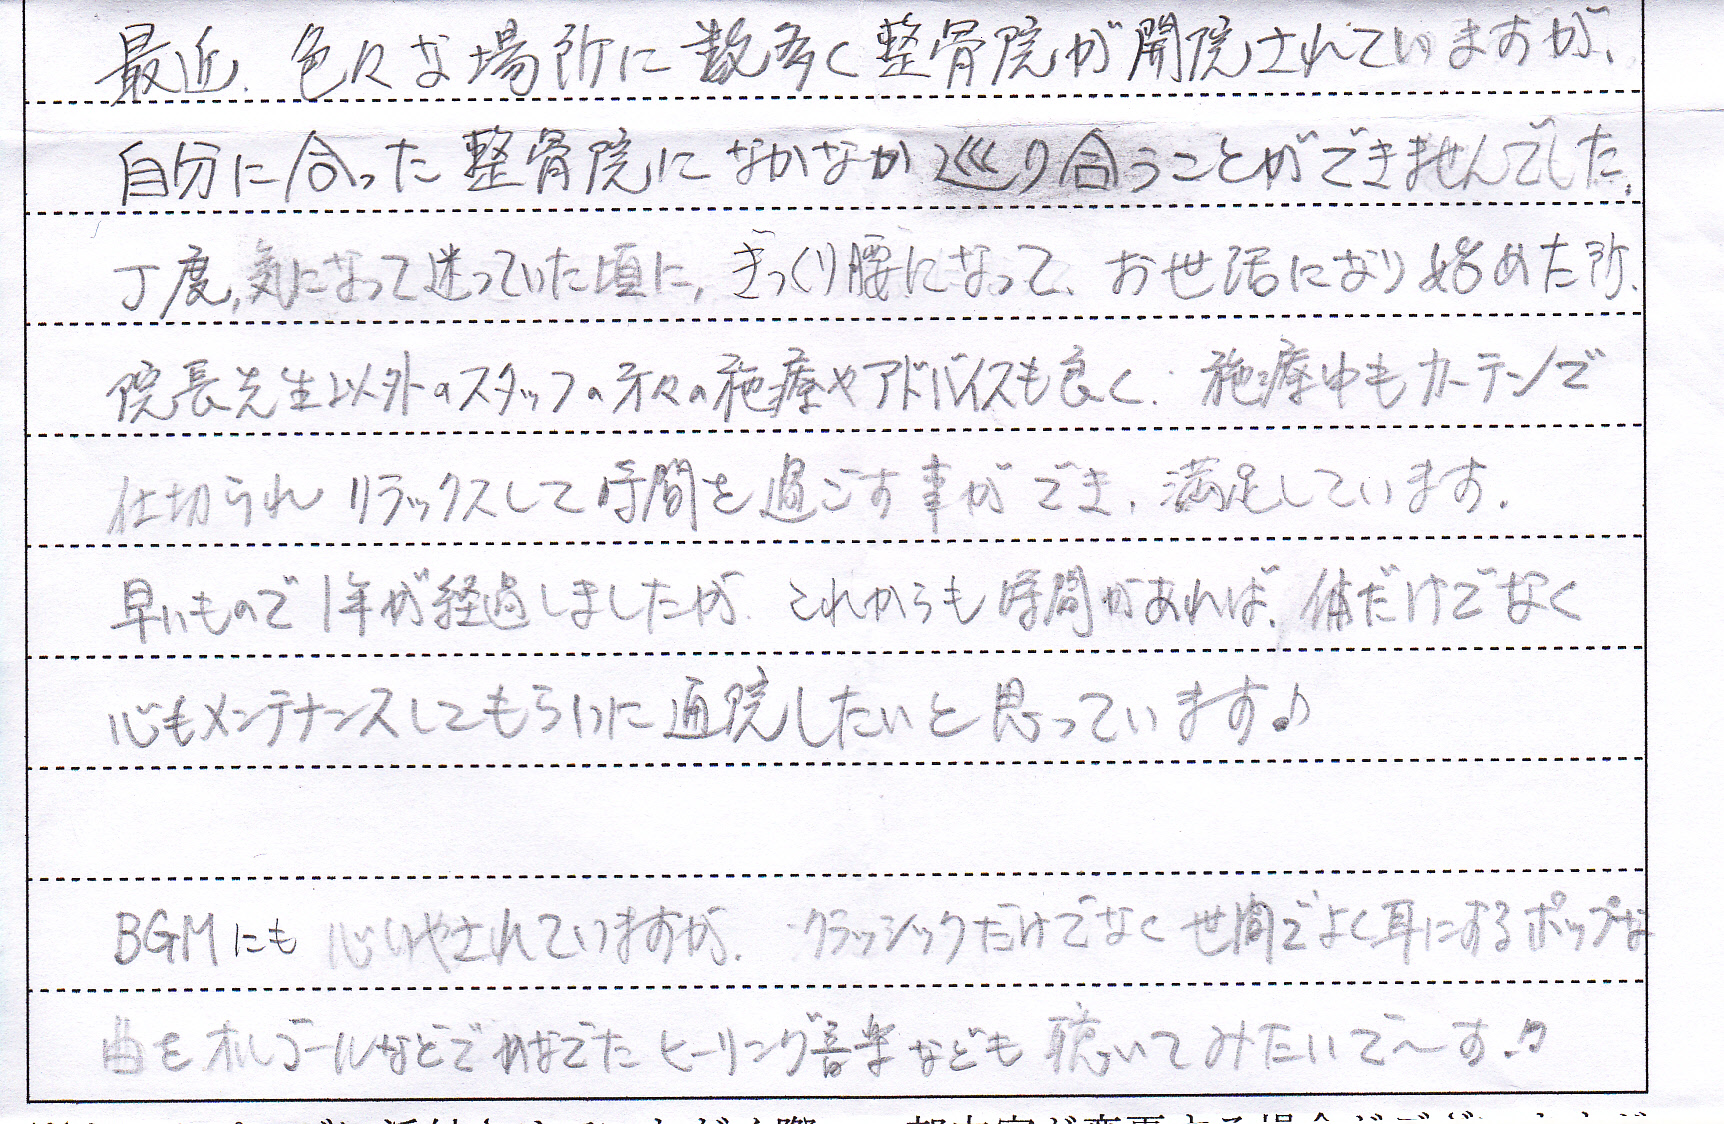 最近、色々な場所に数多く整骨院が開院されていますが、
自分に合った整骨院になかなか巡り合うことができませんでした。
丁度、気になって迷っていた頃に、ぎっくり腰になって、お世話になり始めた所、
院長先生以外のスタッフの方々の施療やアドバイスも良く、施療中もカーテンで
仕切られ リラックスして時間を過ごす事ができ、満足しています。
早いもので1年が経過しましたが、これからも時間があれば、体だけでなく
心もメンテナンスしてもらいに通院したいと思っています♪
BGMにも 心いやされていますが、クラッシックだけでなく世間でよく耳にするポップな
曲をオルゴールなどでかなでたヒーリング音楽なども聴いてみたいで〜す♫